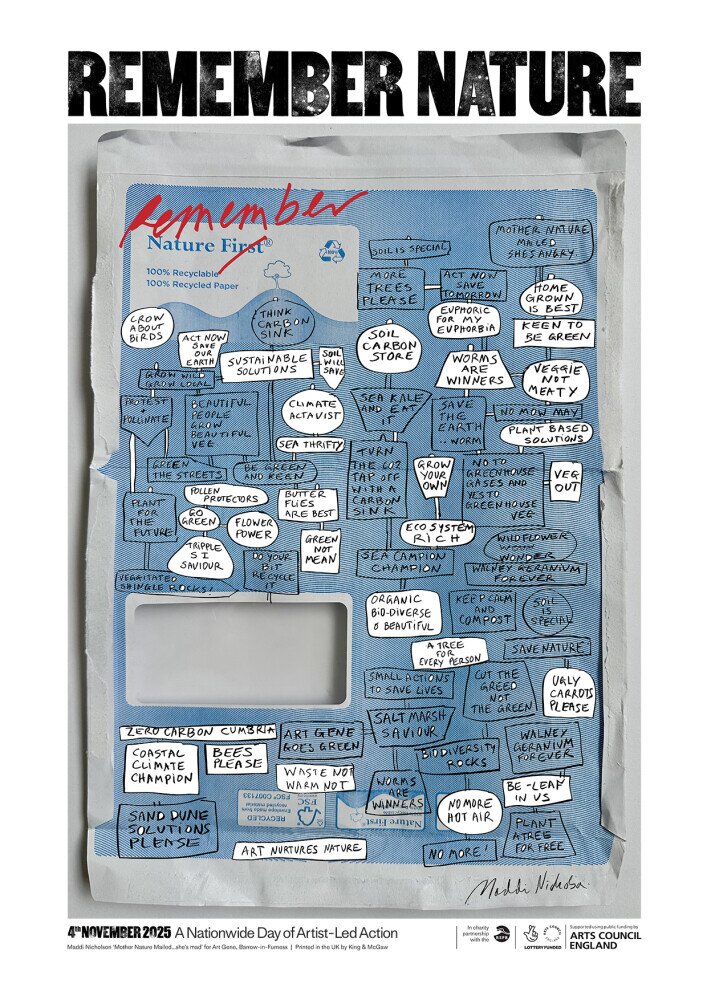 REMEMBER NATURE
Remember
Nature First®
100% Recyclable
100% Recycled Paper
100%
SOIL IS SPECIAL
MOTHER NATURE
MAILED
SHES ANGRY
MORE
TREES
PLEASE
ACT NOW
SAVE
TOMORROW
HOME
GROWN
IS BEST
CROW
ABOUT
BIRDS
THINK
CARBON
SINK
EUPHORIC
FOR MY
EUPHORBIA
KEEN TO
BE GREEN
ACT NOW
SAVE
OUR
EARTH
SUSTAINABLE
SOLUTIONS
SOIL
WILL
SAVE
SOIL
CARBON
STORE
WORMS
ARE
WINNERS
VEGGIE
NOT
MEATY
GROW WILD
GROW LOCAL
PROTEST
+
POLLINATE
BEAUTIFUL
PEOPLE
GROW
BEAUTIFUL
VEE
CLIMATE
ACTAVIST
SEA KALE
AND EAT
IT
SAVE
THE
EARTH
..WORM
NO MOW MAY
PLANT BASED
SOLUTIONS
SEA THRIFTY
GREEN
THE STREETS
BE GREEN
AND KEEN
TURN
THE CO2
TAP OFF
WITH A
CARBON
SINK
GROW
YOUR
OWN
NO TO
GREENHOUSE
GASES AND
YES TO
GREENHOUSE
VEG
VEG
OUT
PLANT
FOR
THE
FUTURE
POLLEN
PROTECTORS
BUTTER
FLIES
ARE BEST
GO
GREEN
FLOWER
POWER
ECOSYSTEM
RICH
WILDFLOWER
WONDER
TRIPPLE
S I
SAVIOUR
GREEN
NOT
MEAN
DO YOUR
BIT
RECYCLE
IT
SEA CAMPION
CHAMPION
WALNEY GERANIUM
FOREVER
VEGGITATED
SHINGLE ROCKS!
ORGANIC
BIO-DIVERSE
& BEAUTIFUL
KEEP CALM
AND
COMPOST
SOIL
IS
SPECIAL
A TREE
FOR
EVERY PERSON
SAVE NATURE
SMALL ACTIONS
TO SAVE LIVES
CUT THE
GREED
NOT
THE GREEN
UGLY
CARROTS
PLEASE
ZERO CARBON CUMBRIA
ART GENE
GOES GREEN
SALT MARSH
SAVIOUR
WALNEY
GERANIUM
FOREVER
COASTAL
CLIMATE
CHAMPION
BEES
PLEASE
BIODIVERSITY
ROCKS
WASTE NOT
WARM NOT
WORMS
ARE
WINNERS
BE-LEAF
IN US
NO MORE
HOT AIR
SAND DUNE
SOLUTIONS
PLEASE
RECYCLED
Envelope made from
recycled material
FSC® C007133
FSC
Nature First
PLANT
A TREE
FOR FREE
ART NURTURES NATURE
NO MORE!
Maddi Nicholson
4th NOVEMBER 2025 A Nationwide Day of Artist-Led Action
Maddi Nicholson 'Mother Nature Mailed.. she's mad' for Art Gene, Barrow-in-Furness | Printed in the UK by King & McGaw
In charity
partnership
with the
LOTTERY FUNDED
Supported using public funding by
ARTS COUNCIL
ENGLAND